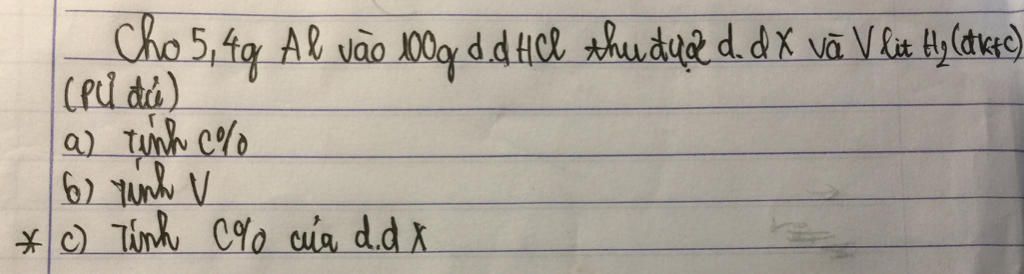 Cho 5,4g Al vào 100g d.d HCl thu được d.d X và V lít H₂ (đktc)
(PƯ đủ)
a) Tính C%
b) Tính V
* c) Tính C% của d.d X